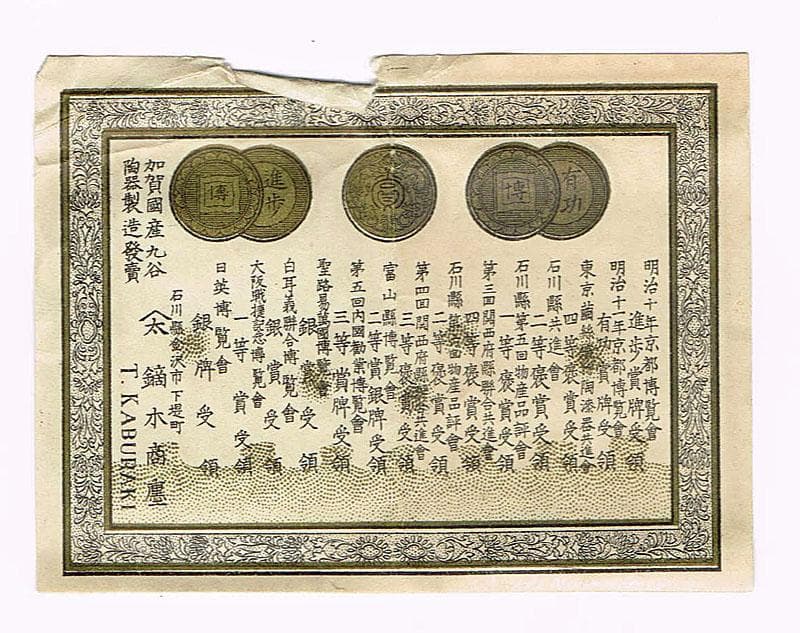 進歩
博
有功
博
明治十年京都博覽會
進歩賞牌受領
明治十一年京都博覽會
有功賞牌受領
四等褒賞受領
石川縣共進會
二等褒賞受領
石川縣第五回物産品評會
一等褒賞受領
第三回関西府縣聯合共進會
四等褒賞受領
二等褒賞受領
三等褒賞受領
富山縣博覽會
二等賞銀牌受領
第五回内國勸業博覽會
三等賞牌受領
聖路易萬國博覽會
銀賞受領
白耳義聯合博覽會
銀賞受領
大阪戰捷記念博覽會
一等賞受領
日英博覽會
銀牌受領
石川縣金沢市下堤町
加賀國産九谷
陶器製造發賣
鏑木商廛
T. KABURAKI